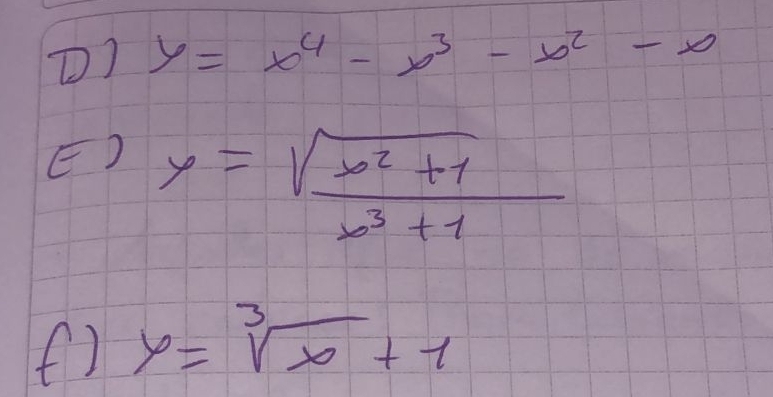 D) y = x⁴ - x³ - x² - x
E) y = √(x² + 1) / (x³ + 1)
f) y = ∛x + 1